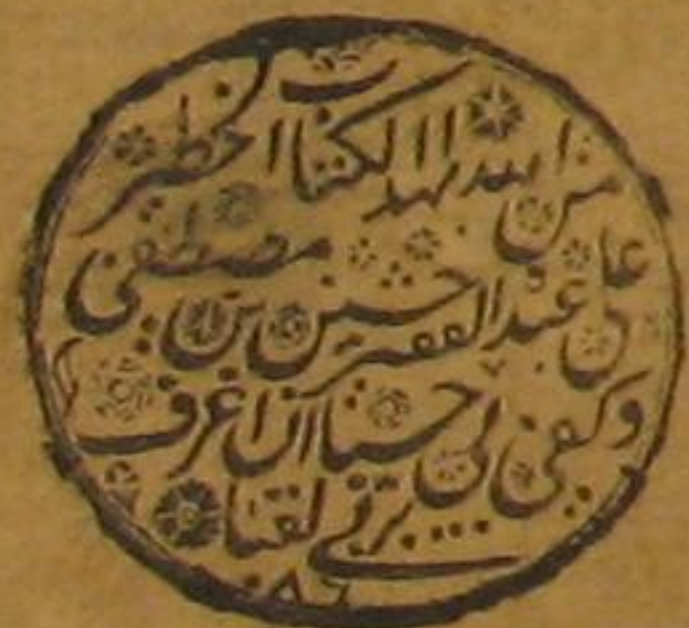 من الله بهذا الكتاب الخطير
على عبد الفقير حسين بن مصطفى
وكفى لي حسبا ان اعرف
بربي لقبا